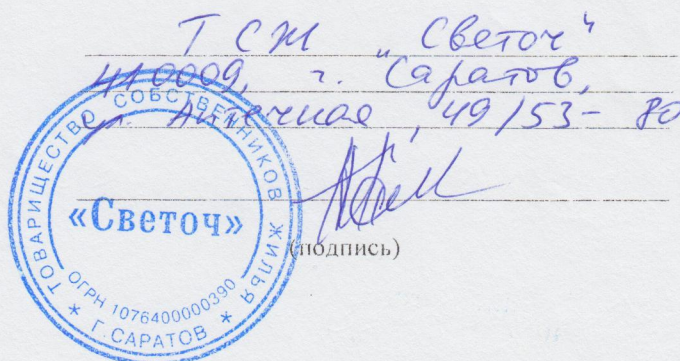 ТСЖ „Светоч"
410009, г. Саратов,
ул. Аптечная, 49/53- 80
(подпись)
ТОВАРИЩЕСТВО СОБСТВЕННИКОВ ЖИЛЬЯ
«Светоч»
ОГРН 1076400000390
* Г.САРАТОВ *